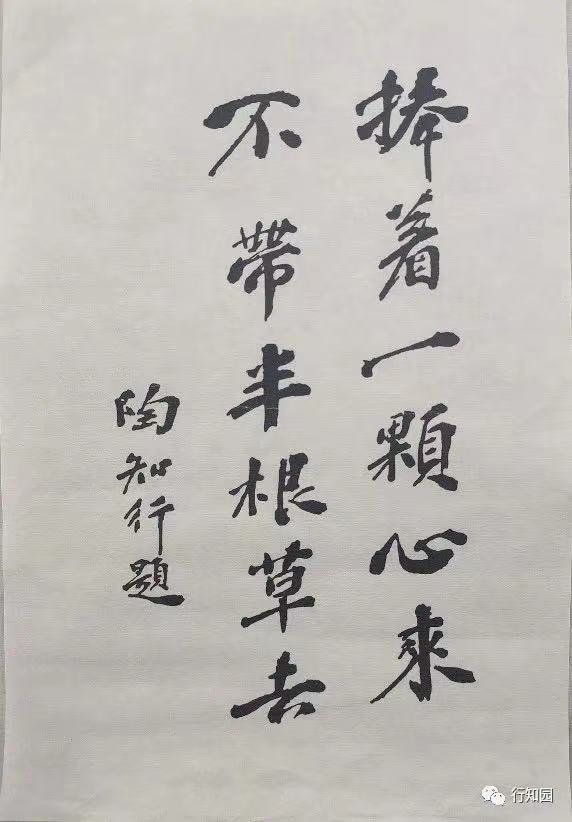 捧着一顆心来
不帶半根草去
陶知行題
行知园